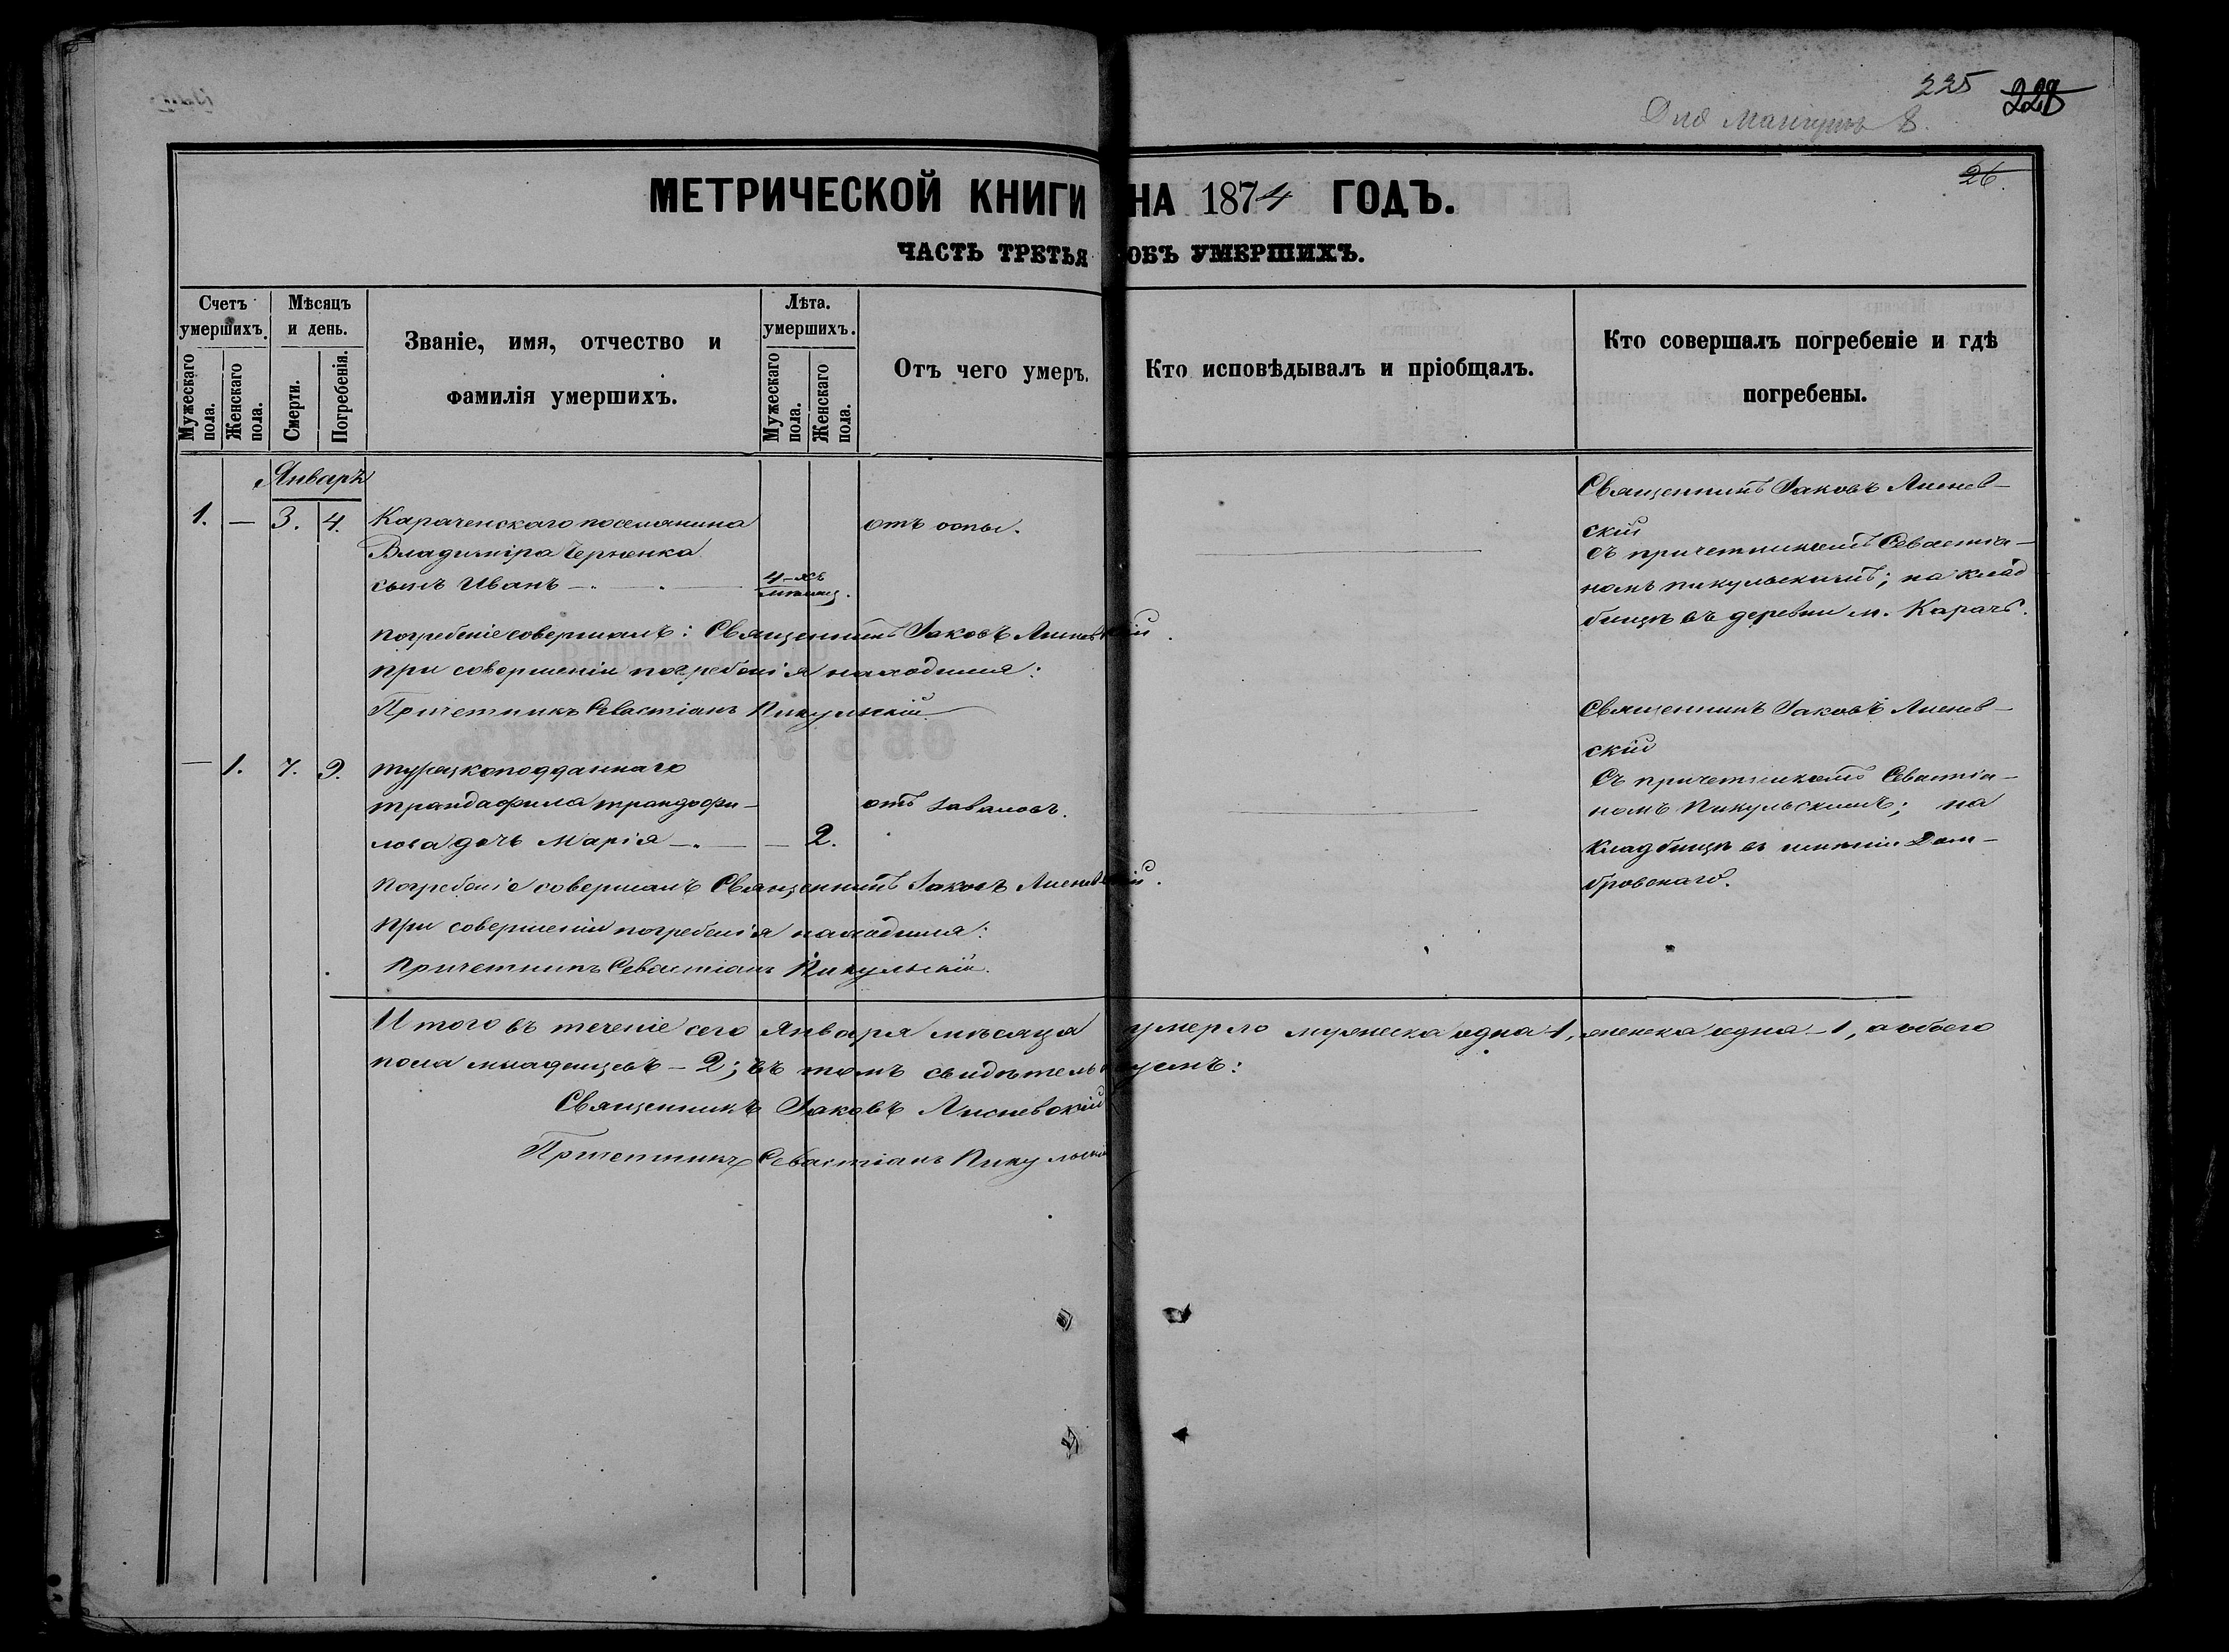 225 228
26.
МЕТРИЧЕСКОЙ КНИГИ НА 1874 ГОДЪ.
ЧАСТЬ ТРЕТЬЯ ОБЪ УМЕРШИХЪ.
Счетъ умершихъ.
Мужескаго пола.
Женскаго пола.
Мѣсяцъ и день.
Смерти.
Погребенія.
Званіе, имя, отчество и
фамилія умершихъ.
Лѣта. умершихъ.
Мужескаго пола.
Женскаго пола.
Отъ чего умеръ.
Кто исповѣдывалъ и пріобщалъ.
Кто совершалъ погребеніе и гдѣ
погребены.
Январь
1. — 3. 4. Караченскаго поселянина
Владиміра Черненка
сынъ Иванъ
4-хъ мѣсяц.
отъ оспы.
Священникъ Іаковъ Лиснев-
скій
съ причетникомъ Севастіа-
номъ Пикульскимъ; на клад
бищѣ въ деревни м. Карачъ.
погребеніе совершалъ: Священникъ Іаковъ Лисневскій.
при совершеніи погребенія находился:
Причетникъ Севастіанъ Пикульскій.
— 1. 7. 9. турецкоподданнаго
трандафила трандофи-
лова дочь Марія — 2.
отъ заваловъ.
Священникъ Іаковъ Лиснев-
скій
Съ причетникомъ Севастіа-
номъ Пикульскимъ; на
кладбищѣ въ имѣніи Дом-
бровскаго.
Погребеніе совершалъ Священникъ Іаковъ Лисневскій.
При совершеніи погребенія находился:
Причетникъ Севастіанъ Пикульскій.
Итого въ теченіе сего Января мѣсяца умерло мужеска одна 1, женска одна — 1, а обоего
пола младенцевъ — 2; въ томъ свидѣтельствуемъ:
Священникъ Іаковъ Лисневскій
Причетникъ Севастіанъ Пикульскій